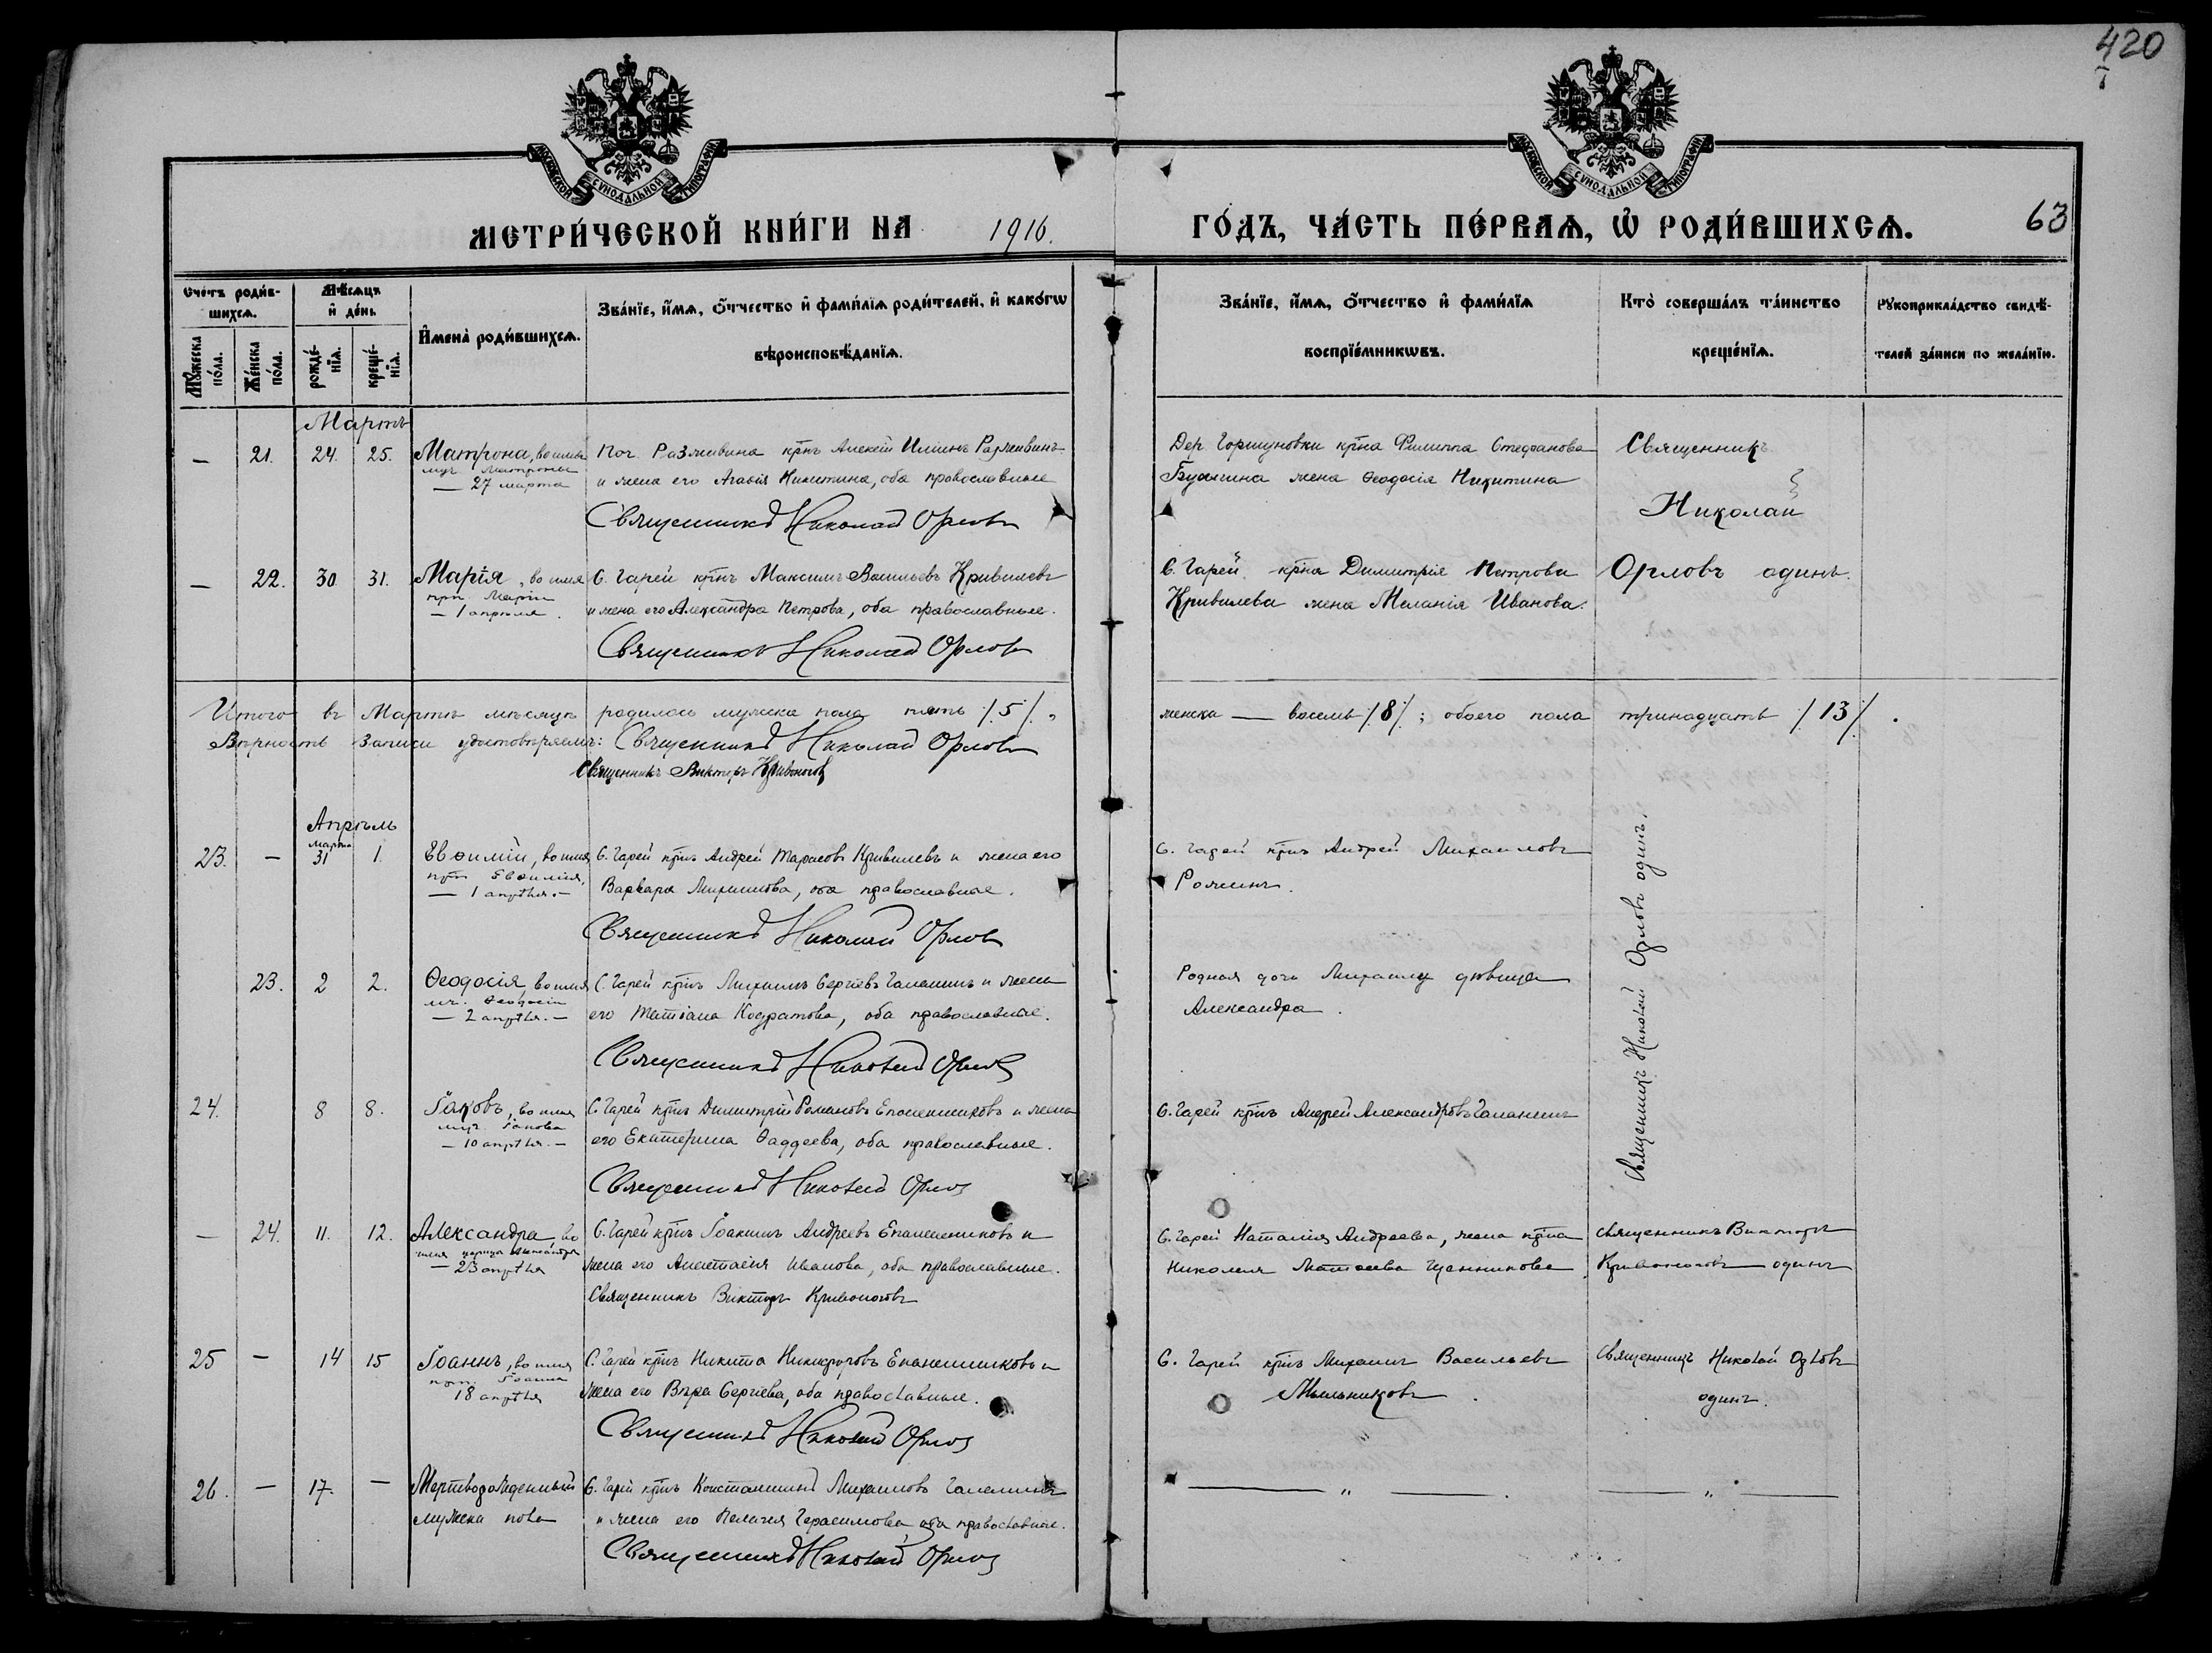 420
МОСКОВСКОЙ СѴНОДАЛЬНОЙ ТИПОГРАФІИ
МОСКОВСКОЙ СѴНОДАЛЬНОЙ ТИПОГРАФІИ
МЕТРИ́ЧЕСКОЙ КНИ́ГИ НА 1916. ГО́ДЪ, ЧА́СТЬ ПЕ́РВАѦ, Ѡ҆ РОДИ́ВШИХСѦ.
63
Счетъ роди́в-
шихсѧ.
Мꙋ́жеска
по́ла.
Же́нска
по́ла.
Мѣ́сѧцъ
и҆ де́нь
рожде́-
нїѧ.
креще́-
нїѧ.
И҆мена̀ роди́вшихсѧ.
Зва́нїе, и҆́мѧ, ѻ҆́тчество и҆ фами́лїѧ роди́телей, и҆ како́гѡ
вѣроисповѣ́данїѧ.
Зва́нїе, и҆́мѧ, ѻ҆́тчество и҆ фами́лїѧ
воспрїе́мникѡвъ.
Кто̀ соверша́лъ та́инство
креще́нїѧ.
Рꙋкоприкла́дство свидѣ́-
телей за́писи по жела́нїю.
Мартъ
— 21. 24. 25.
Матрона, во имя
муч. Матроны
— 27 марта
Поч. Разживина крнъ Алексій Ильинъ Разживинъ
и жена его Агаѳія Никитина, оба православные
Священникъ Николай Орловъ
Дер. Горшуновки крна Филиппа Стефанова
жена Ѳеодосія Никитина
Священникъ
Николай
Орловъ одинъ.
— 22. 30 31.
Марія, во имя
прп. Маріи
— 1 апрѣля.
С. Гарей крнъ Максимъ Васильевъ Кривилевъ
и жена его Александра Петрова, оба православные.
Священникъ Николай Орловъ
С. Гарей крна Димитрія Петрова
Кривилева жена Меланія Иванова.
Итого въ Мартѣ мѣсяцѣ родилось мужска пола пять /5/, женска — восемь /8/; обоего пола тринадцать /13/.
Вѣрность записи удостовѣряемъ: Священникъ Николай Орловъ
Священникъ Викторъ Кривоноговъ
Апрѣль
23. — марта 31 1.
Евѳимій, во имя
прп Евѳимія,
— 1 апрѣля. —
С. Гарей крнъ Андрей Тарасовъ Кривилевъ и жена его
Варвара Михаилова, оба православные.
Священникъ Николай Орловъ
С. Гарей крнъ Андрей Михаиловъ
Рожинъ.
Священникъ Николай Орловъ одинъ.
23. 2 2.
Ѳеодосія, во имя
мч. Ѳеодосіи
— 2 апрѣля. —
С. Гарей крнъ Михаилъ Сергіевъ Галанинъ и жена
его Татіана Кодратова, оба православные.
Священникъ Николай Орловъ
Родная дочь Михаилу дѣвица
Александра.
24. 8 8.
Іаковъ, во имя
муч. Іакова
— 10 апрѣля. —
С. Гарей крнъ Димитрій Романовъ Епанешниковъ и жена
его Екатерина Ѳаддеева, оба православные.
Священникъ Николай Орловъ
С. Гарей крнъ Андрей Александровъ Галанинъ
— 24. 11. 12.
Александра, во
имя царицы Александры
— 23 апрѣля
С. Гарей крнъ Іоакимъ Андреевъ Епанешниковъ и
жена его Анастасія Иванова, оба православные.
Священникъ Викторъ Кривоноговъ
С. Гарей Наталія Андреева, жена крна
Николая Матѳеева Щенникова
Священникъ Викторъ
Кривоноговъ одинъ
25 — 14 15
Іоаннъ, во имя
прп. Іоанна
18 апрѣля
С. Гарей крнъ Никита Никифоровъ Епанешниковъ и
жена его Вѣра Сергіева, оба православные.
Священникъ Николай Орловъ
С. Гарей крнъ Михаилъ Васильевъ
Мыльниковъ.
Священникъ Николай Орловъ
одинъ.
26. — 17. —
Мертворожденный
мужска пола
С. Гарей крнъ Константинъ Михаиловъ Галанинъ
и жена его Пелагея Герасимова оба православные.
Священникъ Николай Орловъ
— „ — — „ —